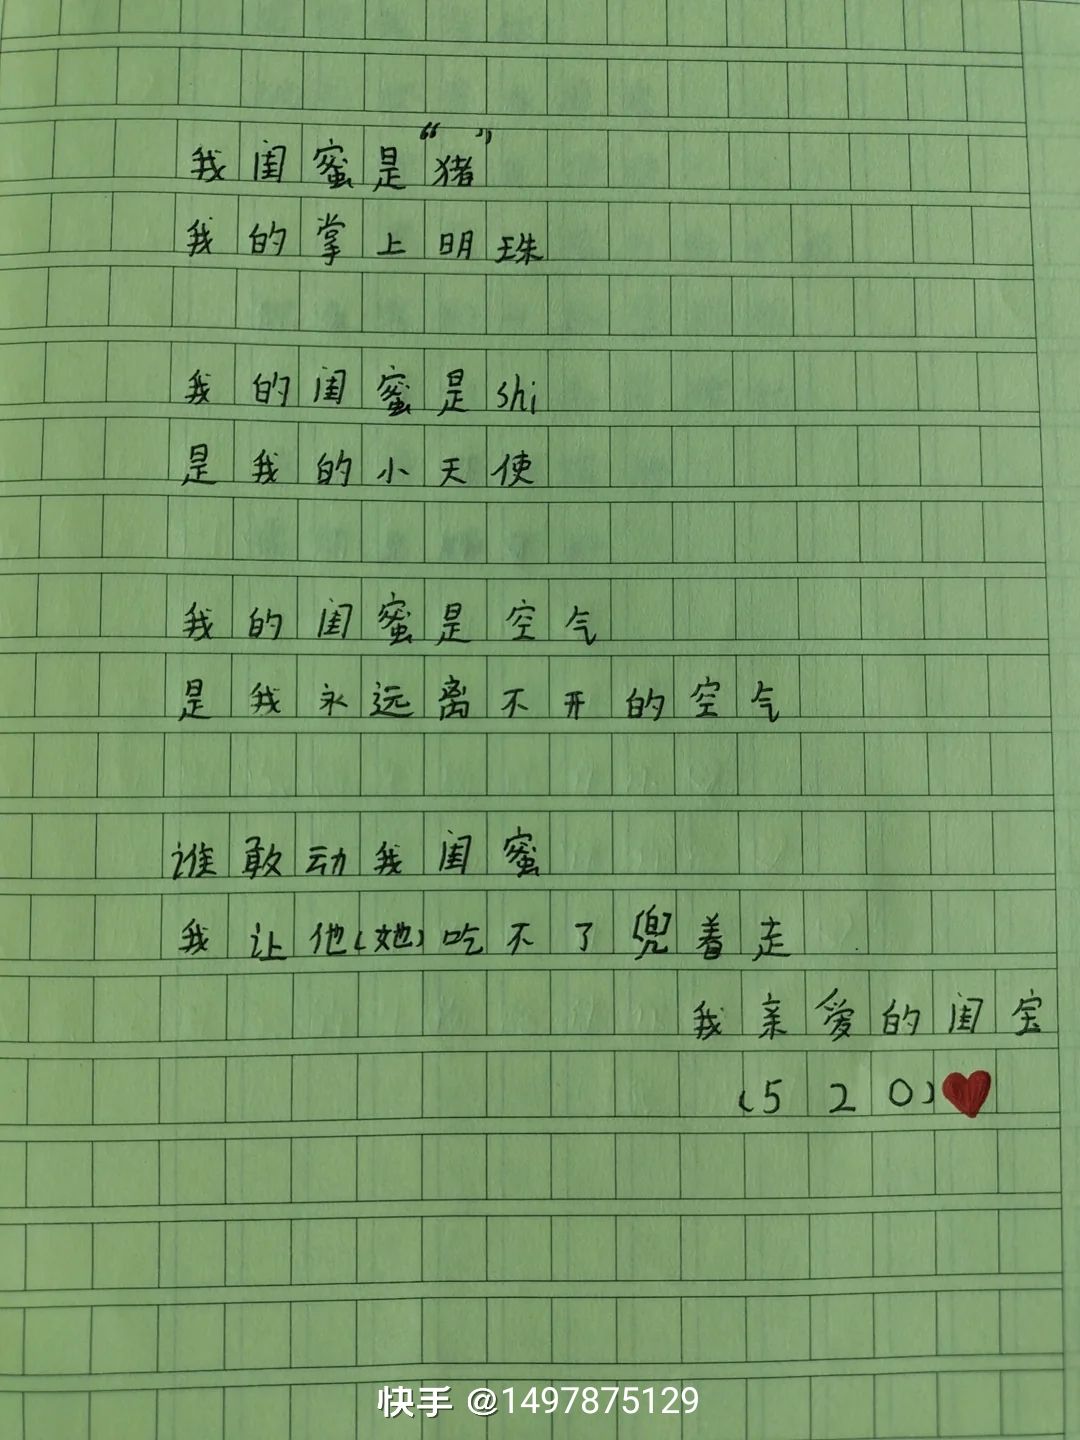 我闺蜜是“猪”
我的掌上明珠
我的闺蜜是shi
是我的小天使
我的闺蜜是空气
是我永远离不开的空气
谁敢动我闺蜜
我让他(她)吃不了兜着走
我亲爱的闺宝
(520)❤
快手 @1497875129